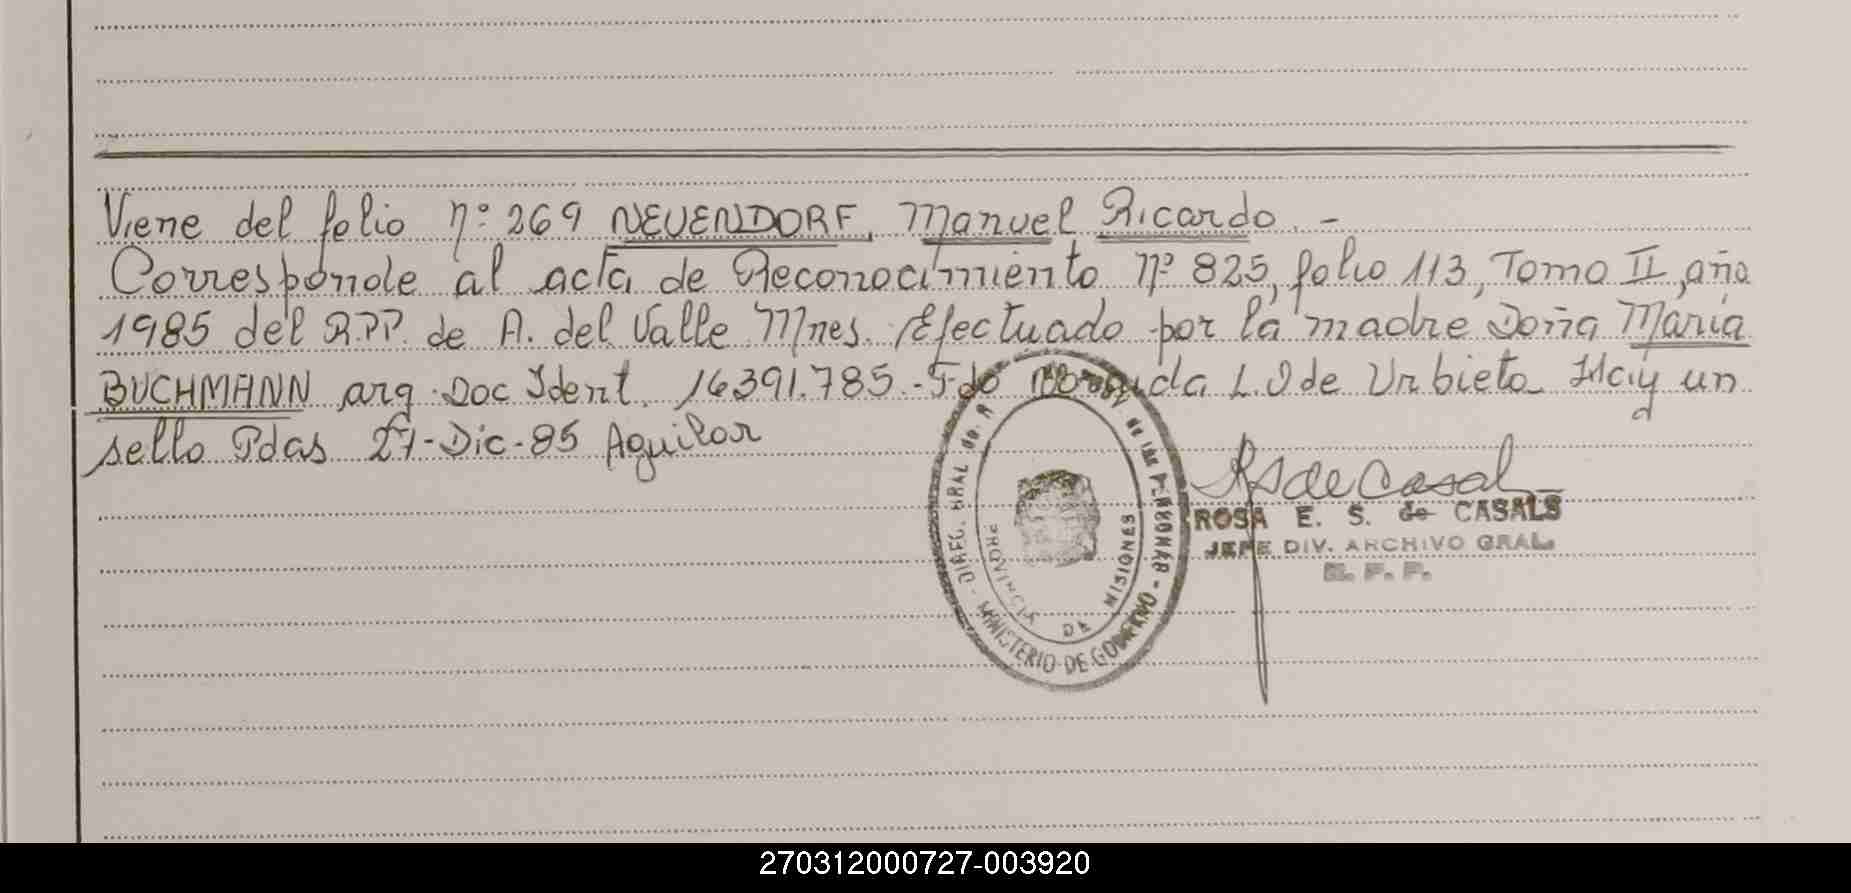 Viene del folio nº 269 NEUENDORF, Manuel Ricardo.-
Corresponde al acta de Reconocimiento Nº 825, folio 113, Tomo II, año
1985 del R.P.P. de A. del Valle Mnes. Efectuado por la madre Doña María
BUCHMANN arg. Doc Ident. 16391.785.- Fdo L. O de Urbieta Hay un
sello Pdas 27-Dic-85 Aguilar
DIREC. GRAL de de las PERSONAS - MINISTERIO DE GOBIERNO -
PROVINCIA DE MISIONES
RS de Casal
ROSA E. S. de CASALS
JEFE DIV. ARCHIVO GRAL.
R. P. P.
270312000727-003920